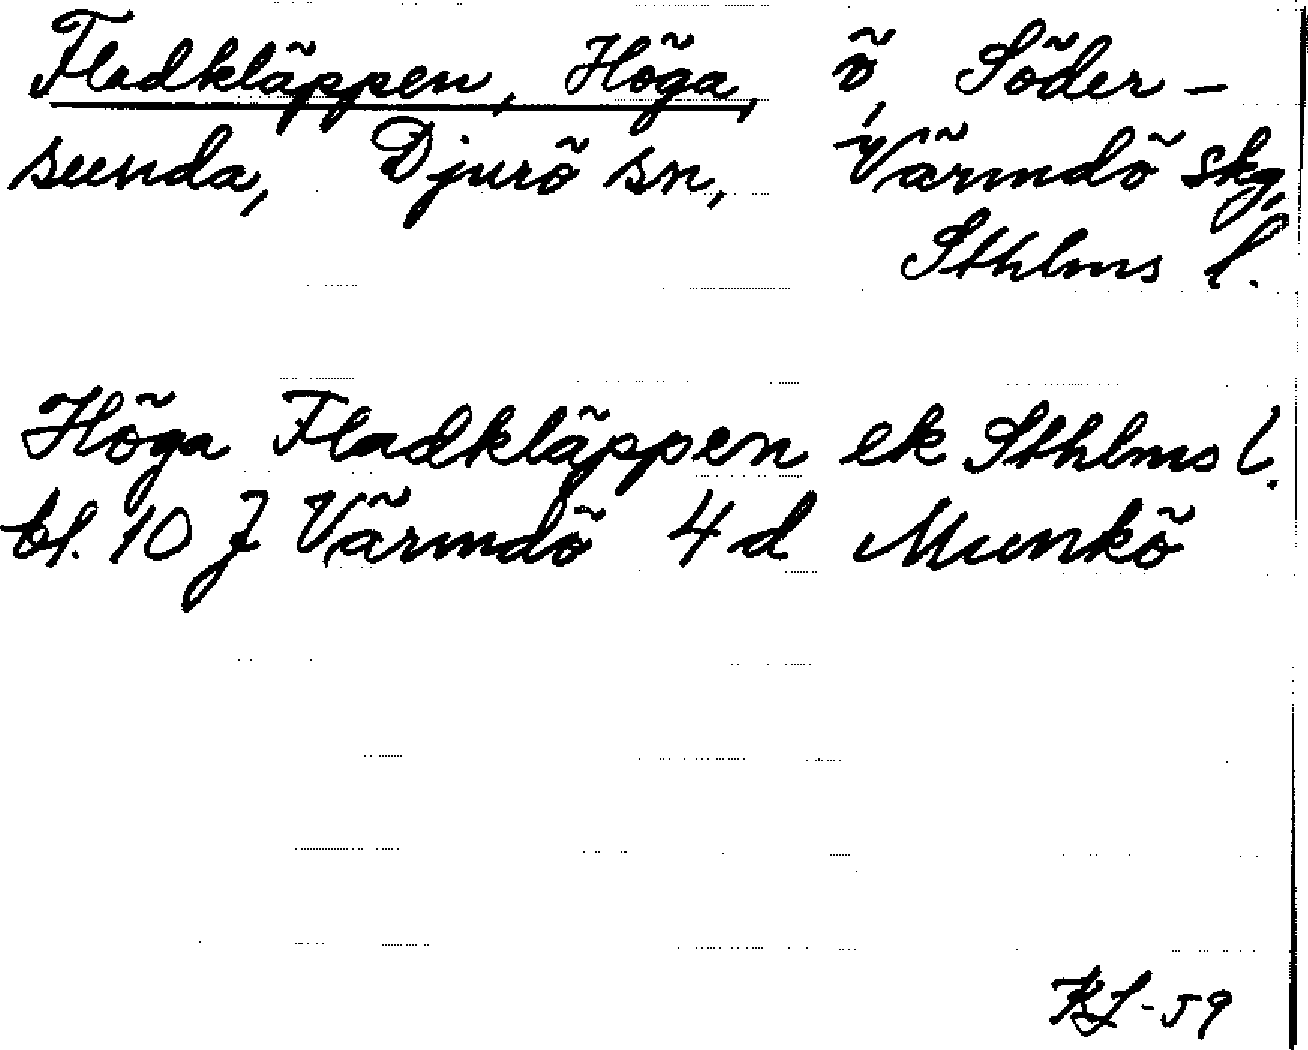 Fladkläppen, Höga, ö, Söder-
sunda, Djurö sn, Värmdö skg,
Sthlms l.
Höga Fladkläppen ek Sthlms l.
bl. 10 J Värmdö 4 d Munkö
KL-59